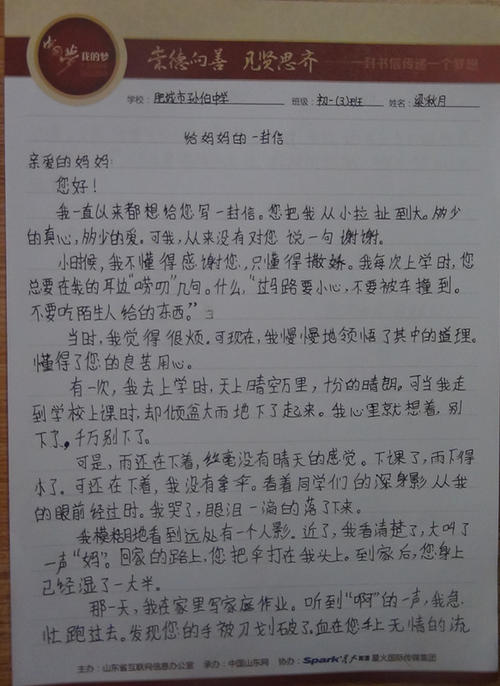 中国梦 我的梦 崇德向善 见贤思齐 一封书信传递一个梦想
学校：肥城市孙伯中学 班级：初一(3)班 姓名：梁秋月
给妈妈的一封信
亲爱的妈妈：
您好！
我一直以来都想给您写一封信。您把我从小拉扯到大。付出多少
的真心，付出多少的爱。可我，从来没有对您说一句谢谢。
小时候，我不懂得感谢您，只懂得撒娇。我每次上学时，您
总要在我的耳边“唠叨”几句。什么，“过马路要小心，不要被车撞到。
不要吃陌生人给的东西。”
当时，我觉得很烦。可现在，我慢慢地领悟了其中的道理。
懂得了您的良苦用心。
有一次，我去上学时，天上晴空万里，十分的晴朗。可当我走
到学校上课时，却倾盆大雨地下了起来。我心里就想着，别
下了，千万别下了。
可是，雨还在下着，丝毫没有晴天的感觉。下课了，雨下得
小了。可还在下着，我没有拿伞。看着同学们的深身影从我
的眼前经过时。我哭了，眼泪一滴的落了下来。
我模糊地看到远处有一个人影。近了，我看清楚了，大叫了
一声“妈”。回家的路上，您把伞打在我头上。到家后，您身上
已经湿了一大半。
那一天，我在家里写家庭作业。听到“啊”的一声，我急
忙跑过去。发现您的手被刀划破了。血在您手上无情的流
主办：山东省互联网信息办公室 承办：中国山东网 协办：Spark 星火英语 星火国际传媒集团